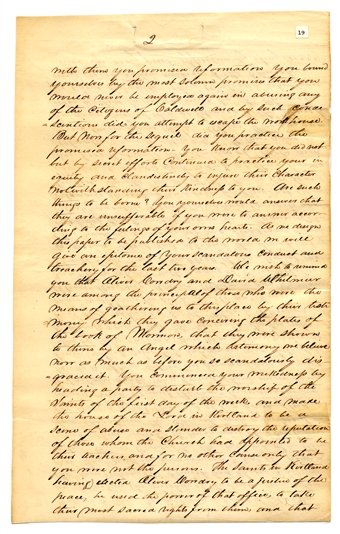 19
2
with them you promised reformation You bound
yourselves by the most solemn promises that you
would never be employed again in abusing any
of the Citizens of Caldwell and by such Conde
scentions did you attempt to escape the work house
But now for the sequel did you practice the
promised reformation You know that you did not
but by secret efforts Continued to practice your in
equity and Clandestinely to injure their Character
notwithstanding their kindness to you Are such
things to be borne? You yourselves would answer that
they are unsufferable if you were to answer accor
ding to the feelings of your own hearts. As we design
this paper to be published to the world we will
give an epitome of your scandalous conduct and
treachery for the last two years. We wish to remind
you that Oliver Cowdry and David Whitmer
were among the principal of those who were the
means of geathering us to this place by their testi
mony which they gave Concerning the plates of
the Book of Mormon, that they were shown
to them by an Angel which testimony we believe
now as much as before you so scandalously dis
graced it. You commenced your wickedness by
heading a party to disturb the worship of the
Saints of the first day of the week and made
the house of the Lord in Kirtland to be a
scene of abuse and slander to destroy the reputation
of those whom the Church had appointed to be
their teachers and for no other cause only that
you were not the persons. The Saints in Kirtland
having elected Oliver Cowdry to be a justice of the
peace, he used the power of that office to take
their most sacred rights from them and that